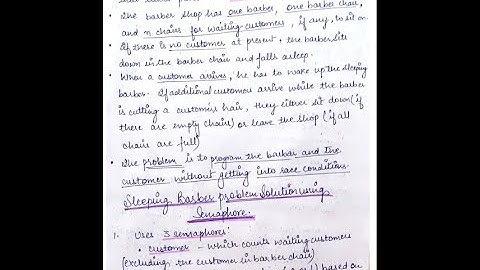 • The barber shop has one barber, one barber
chair, and n chairs for waiting customers, if any, to sit on.
• If there is no customer at present, the barber sits
down in the barber chair and falls asleep.
• When a customer arrives, he has to wake up the sleeping
barber. If additional customers arrive while the barber
is cutting a customers hair, they either sit down (if
there are empty chair) or leave the shop (if all
chair are full)
• The problem is to program the barber and the
customer without getting into race conditions.
Sleeping Barber problem Solution using
Semaphore.
1. Uses 3 semaphores:
• customer - which counts waiting customers
(excluding the customer in barber chair)
based on